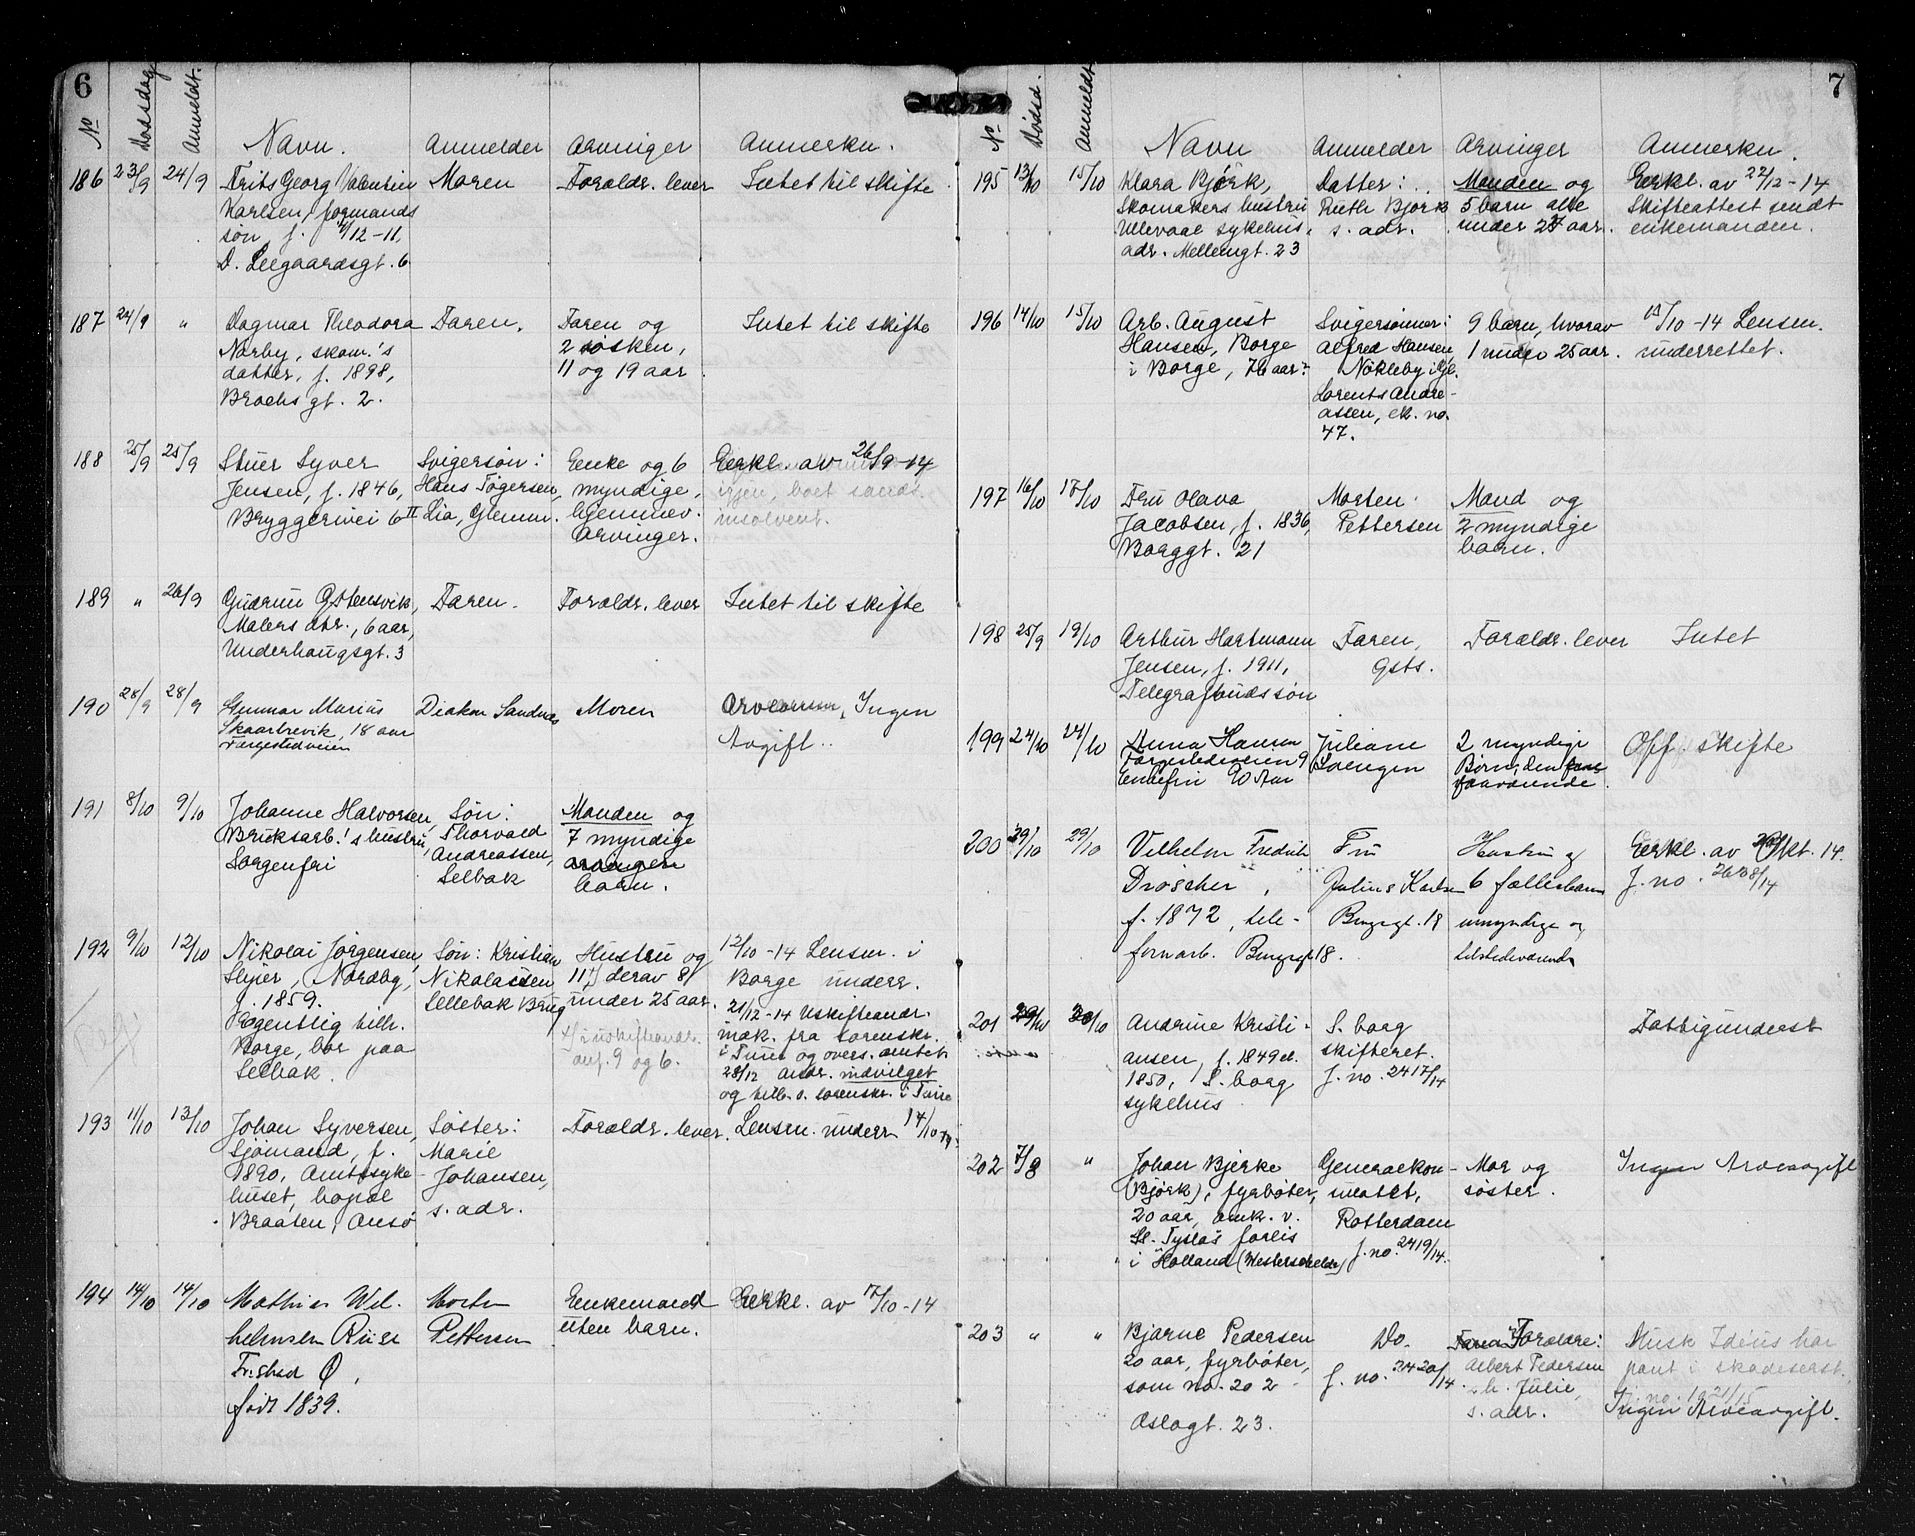 6
No Dødsdag Anmeldt. Navn. Anmelder Arvinger Anmerkn.
186 23/9 24/9 Frits Georg Valentin Moren Foræld. lever Intet til skifte
Karlsen, formands
søn, f. /12-11,
O. Leegaardsgt. 6
187 24/9 " Dagmar Theodora Faren. Faren og Intet til skifte
Norby, skom.'s 2 søsken,
datter, f. 1898, 11 og 19 aar.
Brochs gt. 2.
188 25/9 25/9 Stuer Syver Svigersøn: Enke og 6 Erkl. av 26/9-14
Jensen, f. 1846, Hans Tøgersen, myndige,
Bryggerivei 6 II Lia, Glemm. hjemmev. insolvent.
Arvinger.
189 " 26/9 Gudrun Østensvik, Faren. Foræld. lever Intet til skifte
Malers dtr., 6 aar,
Underhaugsgt. 3
190 28/9 28/9 Gunnar Marius Diakon Sandnæs Moren Ingen
Skaarbrevik, 18 aar Avgift..
Færgestedveien
191 8/10 9/10 Johanne Halvorsen, Søn: Manden og
Bruksarb.'s hustru, Thorvald 7 myndige
Sorgenfri Andreassen, arvinger
Selbak barn.
192 9/10 12/10 Nikolai Jørgensen, Søn: Kristian Hustru og 12/10-14 Lensm. i
Nordby, Nikolaisen 11, derav 8 Borge underr.
f. 1859. Sellebak Brug under 25 aar. 21/12-14 Uskifteandr.
Egentlig tilh. i uskifteandr. mak. fra sorenskr.
Borge, bor paa anf. 9 og 6. i Tune og overs. amtet
Selbak. 28/12 Andr. indvilget
og tilb. s. sorenskr. i Tune
193 11/10 13/10 Johan Syversen, Søster: Foræld. lever. Lensm. underr. 14/10-14.
Sjømand, f. Marie
1890, Amtssyke- Johansen,
huset, bopæl s. adr.
Braaten, Ansø
194 14/10 14/10 Mathias Wil- Morten Enkemand Erkl. av 17/10-14
helmsen Riise Pettersen uten barn.
Fr.stad Ø,
født 1839.
7
No Dødsd. Anmeldt Navn Anmelder Arvinger Anmerkn.
195 13/10 15/10 Klara Bjørk, Datter: Manden og Erkl. av 22/12-14
Skomakers hustru Ruth Bjørk 5 barn alle Skifteattest sendt
Ullevaal sykehus, s. adr. under 21 aar. enkemanden.
adr. Mellemgt. 23
196 14/10 15/10 Arb. August Svigersønner: 9 barn, hvorav 15/10-14 Lensm.
Hansen, Borge Alfred Hansen, 1 under 25 aar. underrettet.
i Borge, 76 aar: Nökleby i Gl.
Lorents Andre-
assen, ek. no.
47.
197 16/10 17/10 Fru Olava Morten Mand og
Jacobsen, f. 1836, Pettersen 2 myndige
Borggt. 21 barn.
198 25/9 19/10 Arthur Hartmann Faren, Foræld. lever Intet
Jensen, f. 1911, Gsts.
Telegrafbudssøn
199 24/10 24/10 Anna Hansen Juliane 2 myndige Off. skifte
Færgestedveien 9 Loengen Børn, den
Enkefru 90 Aar fraværende.
200 29/10 29/10 Vilhelm Fredrik Fru Hustru og Erkl. av Okt. 14.
Drøscher, Julius Karlsen 6 fællesbarn J. no. 2638/14
f. 1872, tele- Bingsgt. 18 umyndige og
fonarb. Bingsgt 18. tilstedeværende
201 29/10 30/10 Andrine Kristi- S. borg Fattigunderst
ansen, f. 1849 el. skifteret.
1850, S. borg J. no. 2417/14
sykehus
202 7/8 " Johan Bjerke Generalkon- Mor og Ingen Arveavgift
(Bjørk), fyrbøter, sulatet, søster.
20 aar, omk. v. Rotterdam
S. "Tysla's" forlis J. no. 2419/14.
i Holland (Westerschelde)
203 " " Bjarne Pedersen Do. Forældre: Musk Idéus har
20 aar, fyrbøter, J. no. 2420/14. Albert Pedersen pant i skadeserst.
som no. 202 h. Julie, J. no. 1921/15
Oslogt. 23. s. adr. Ingen Arveavgift.